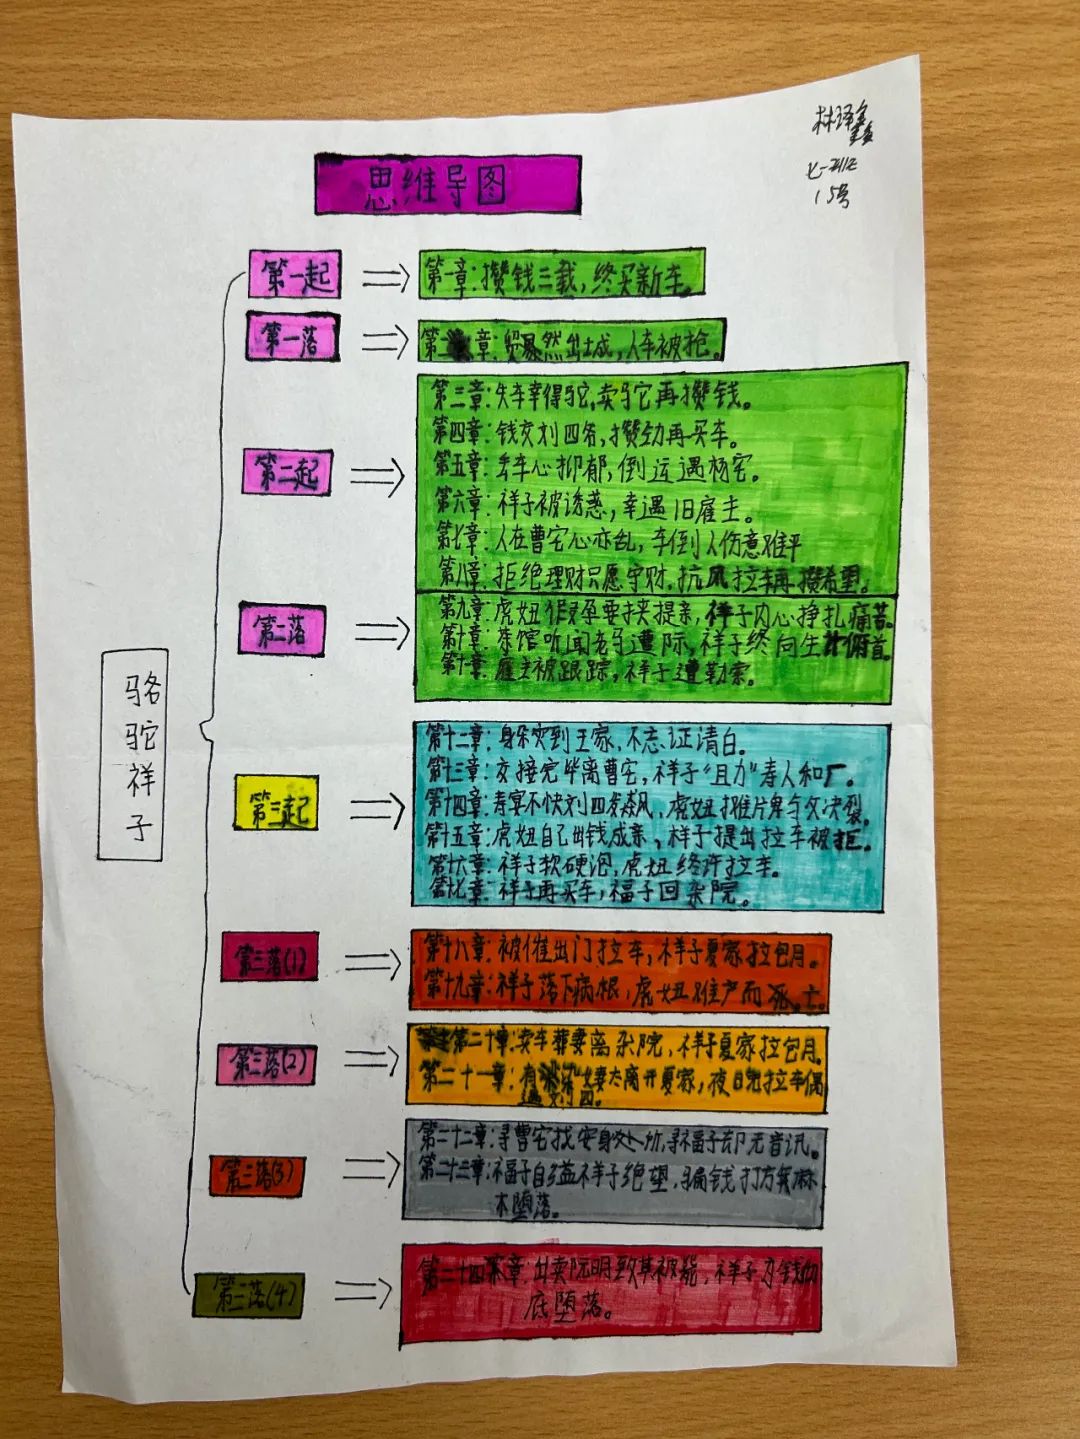 林译鑫
七
15号
思维导图
骆驼祥子
第一起
第一章:攒钱三载,终买新车。
第一落
第二章:贸然出城,人车被抢。
第二起
第三章:失车幸得驼,卖驼再攒钱。
第四章:钱交刘四爷,攒劲再买车。
第五章:丢车心抑郁,倒运遇杨宅。
第六章:祥子被诱惑,幸遇旧雇主。
第七章:人在曹宅心亦乱,车倒人伤意难平
第八章:拒绝理财只愿守财,抗风拉车再攒希望。
第二落
第九章:虎妞假孕要挟提亲,祥子内心挣扎痛苦。
第十章:茶馆听闻老马遭际,祥子终向生计俯首。
第十一章:雇主被跟踪,祥子遭勒索。
第三起
第十二章:躲灾到王家,不忘证清白。
第十三章:交接完毕离曹宅,祥子“且力”寿人和厂。
第十四章:寿宴不快刘四发飙,虎妞摊牌与父决裂。
第十五章:虎妞自己出钱成亲,祥子提出拉车被拒。
第十六章:祥子软硬泡,虎妞终许拉车。
第十七章:祥子再买车,福子回杂院。
第三落(1)
第十八章:被催出门拉车,祥子夏家拉包月。
第十九章:祥子落下病根,虎妞难产而死亡。
第三落(2)
第二十章:卖车葬妻离杂院,祥子夏家拉包月。
第二十一章:有染妻太离开夏家,夜日晃拉车偶
遇刘四。
第三落(3)
第二十二章:寻曹宅找安身处所,寻福子却无音讯。
第二十三章:福子自缢祥子绝望,骗钱打方气麻
木堕落。
第三落(4)
第二十四章:出卖阮明致其被毙,祥子为钱彻
底堕落。